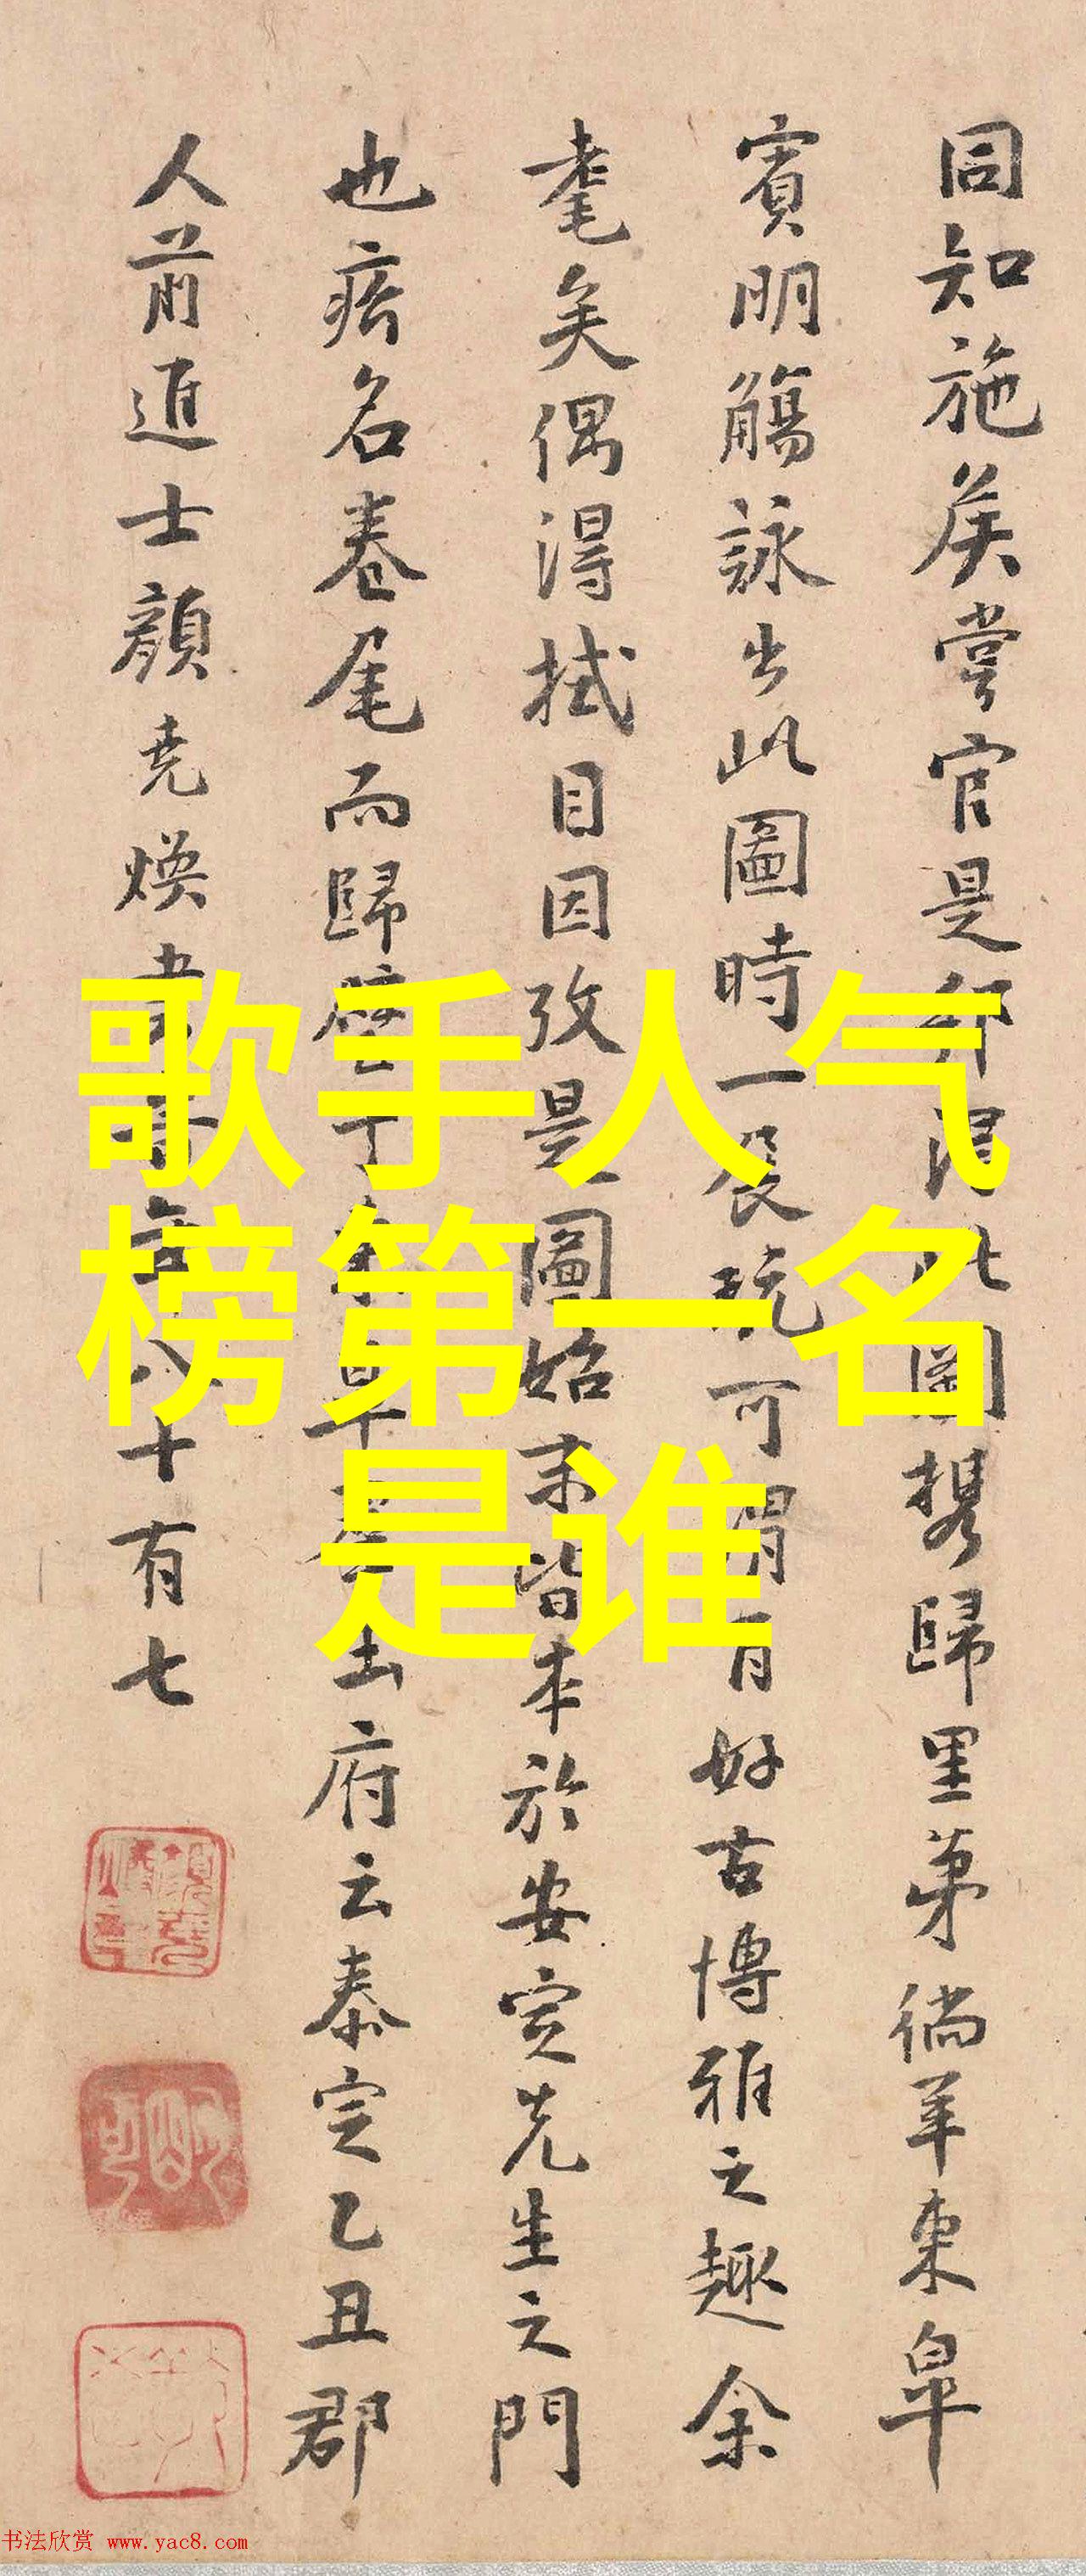 同知施矦嘗官是邦得此圖携歸里苐徜羊東皐
賓明觴詠出此圖時一展玩可謂有好古博雅之趣余
耄矣偶得拭目因攷是圖始末皆本於安定先生之門
也㾗名卷尾而歸
出府云泰定乙丑郡
人前進士顔堯煥書
十有七
歌手人气
榜第一名
是谁
书法欣赏 www.yac8.com